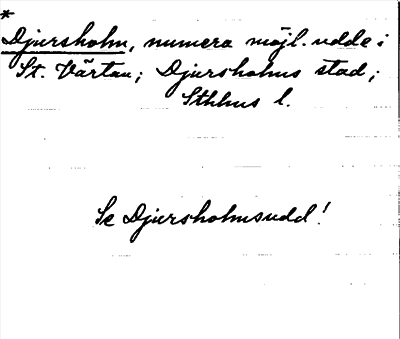 *
Djursholm, numera möjl. udde i
St. Värtan; Djursholms stad;
Sthlms l.
Se Djursholmsudd!